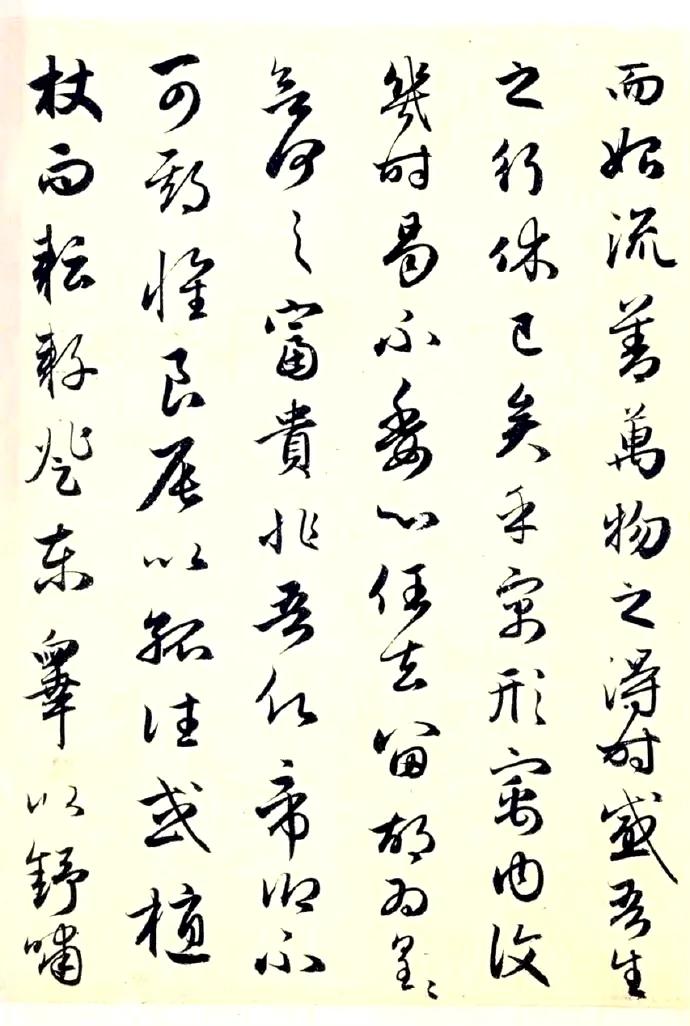 而始流善萬物之得時感吾生
之行休已矣乎寓形寓內復
幾時曷不委心任去留胡為遑遑
無何之富貴非吾願帝鄉不
可期懷良辰以孤往或植
杖而耘耔登東皋以舒嘯